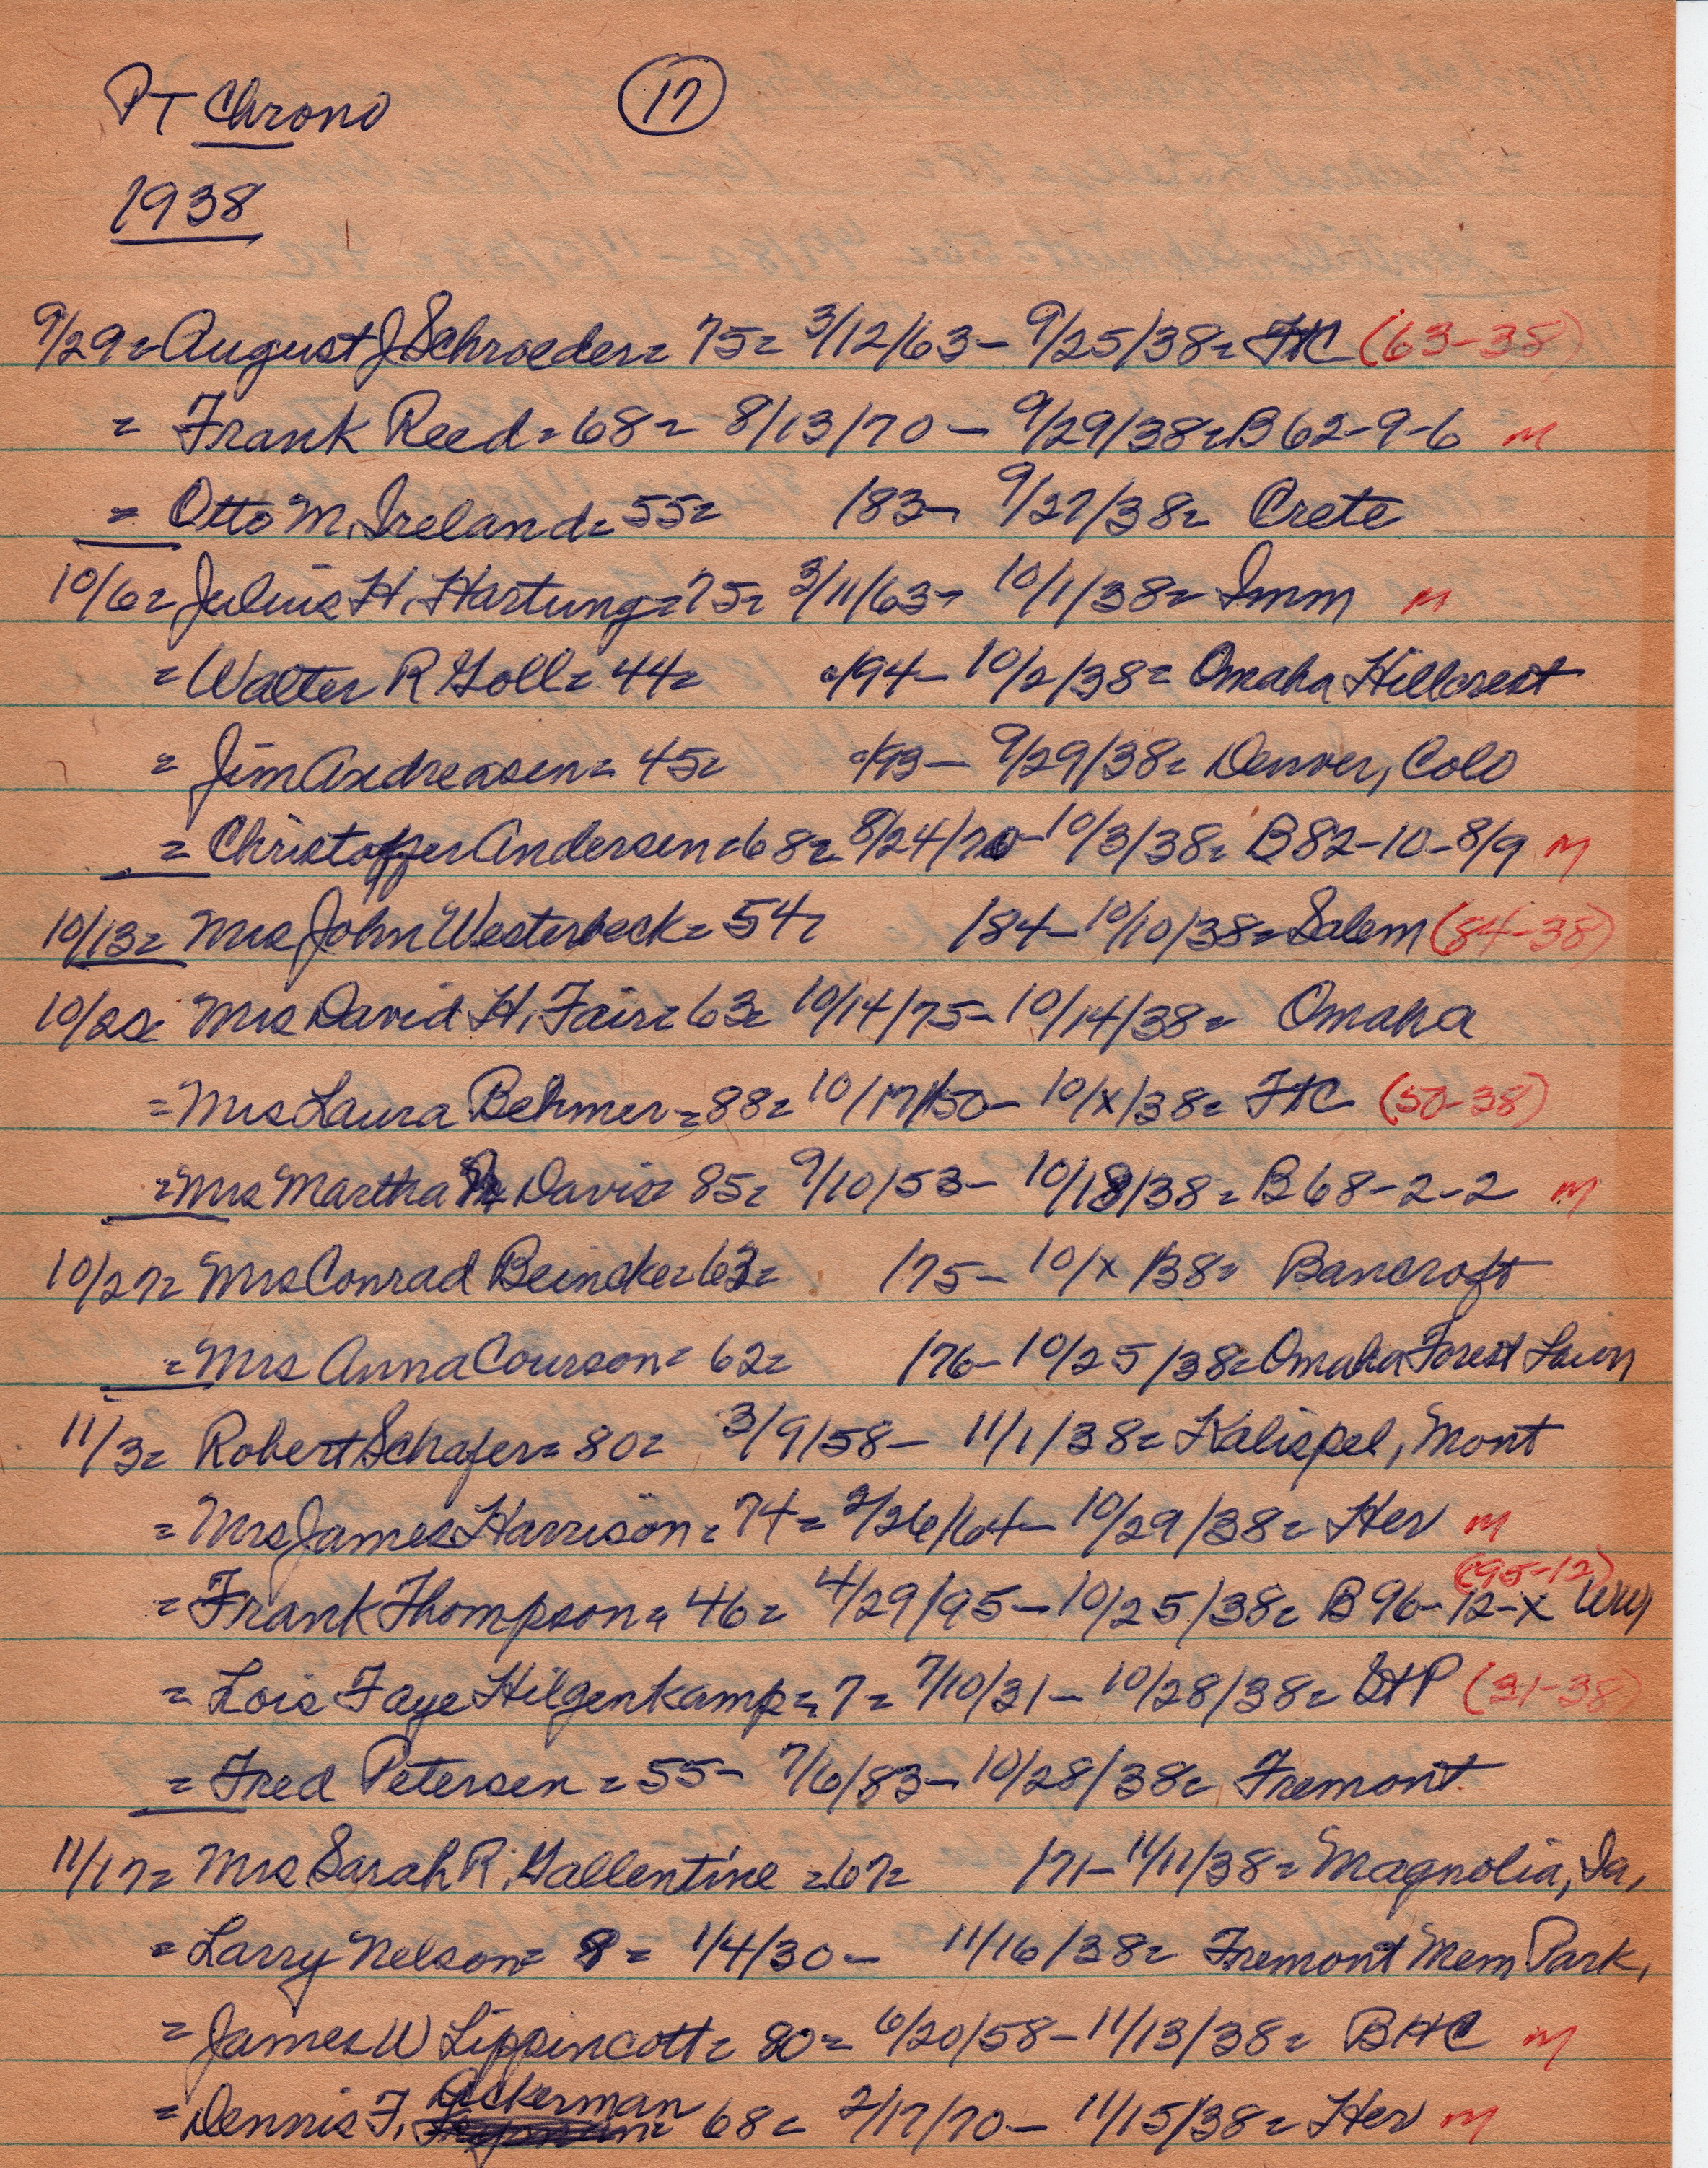 PT Chrono 17
1938
9/29= August J Schroeder= 75= 3/12/63- 9/25/38= FHC (63-38)
= Frank Reed= 68= 8/13/70- 9/29/38= B 62-9-6 M
= Otto M. Ireland= 55= 183- 9/27/38= Crete
10/6= Julius H. Hartung= 75= 3/11/63- 10/1/38= Imm M
= Walter R Goll= 44= 194- 10/2/38= Omaha Hillcrest
= Jim Andreasen= 45= 193- 9/29/38= Denver, Colo
= Christoffer Andersen= 68= 8/24/70- 10/3/38= B 82-10-8/9 M
10/13= Mrs John Westerbeck= 54= 184- 10/10/38= Salem (84-38)
10/20= Mrs David H. Fair= 63= 10/14/75- 10/14/38= Omaha
= Mrs Laura Behmer= 88= 10/17/50- 10/x/38= FHC (50-38)
= Mrs Martha Davis= 85= 9/10/53- 10/18/38= B 68-2-2 M
10/27= Mrs Conrad Beincke= 63= 175- 10/x/38= Bancroft
= Mrs Anna Courson= 62= 176- 10/25/38= Omaha Forest Lawn
11/3= Robert Schafer= 80= 3/9/58- 11/1/38= Kalispel, Mont
= Mrs James Harrison= 74= 2/26/64- 10/29/38= Her M
(95-12)
= Frank Thompson= 46= 4/29/95- 10/25/38= B 96-12-X WW1
= Lois Faye Hilgenkamp= 7= 7/10/31- 10/28/38= DHP (31-38)
= Fred Petersen= 55- 7/6/83- 10/28/38= Fremont
11/17= Mrs Sarah R. Gallentine= 67= 171- 11/11/38= Magnolia, Ia,
= Larry Nelson= 8= 1/4/30- 11/16/38= Fremont Mem Park,
= James W Lippincott= 80= 6/20/58- 11/13/38= BHC M
= Dennis F. Ackerman 68= 2/17/70- 11/15/38= Her M